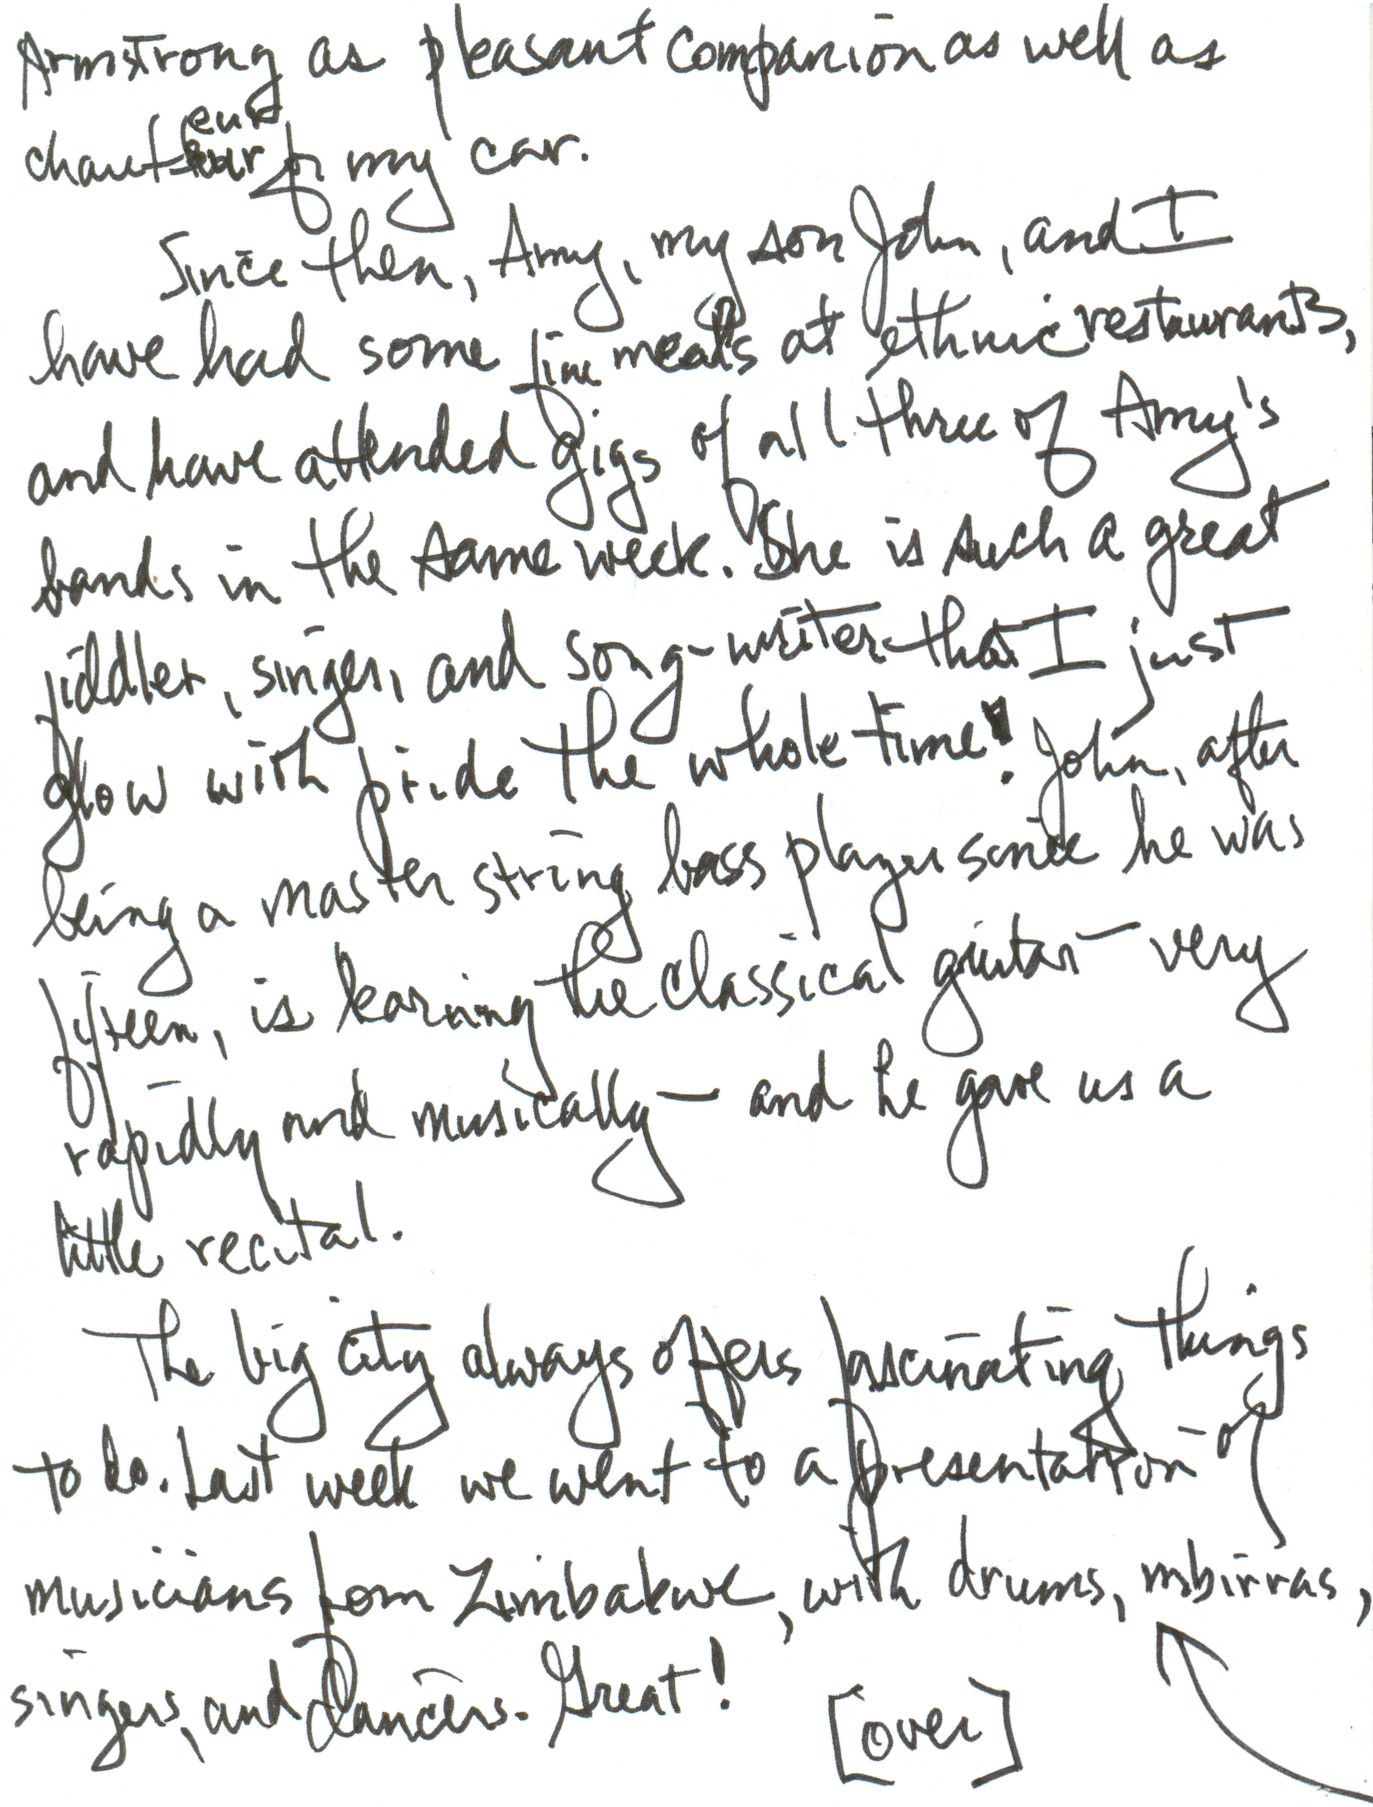 Armstrong as pleasant companion as well as
chauffeur for my car.
Since then, Amy, my son John, and I
have had some fine meals at ethnic restaurants,
and have attended gigs of all three of Amy's
bands in the same week. She is such a great
fiddler, singer, and song-writer that I just
glow with pride the whole time! John, after
being a master string bass player since he was
fifteen, is learning the classical guitar — very
rapidly and musically — and he gave us a
little recital.
The big city always offers fascinating things
to do. Last week we went to a presentation of
musicians from Zimbabwe, with drums, mbirras,
singers, and dancers. Great!
[over]